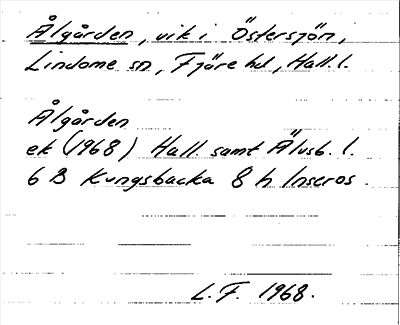 Ålgården, vik i Östersjön,
Lindome sn, Fjäre hd, Hall. l.
Ålgården
ek (1968) Hall samt Älvsb. l.
6 B Kungsbacka 8 h Inseros.
L. F. 1968.